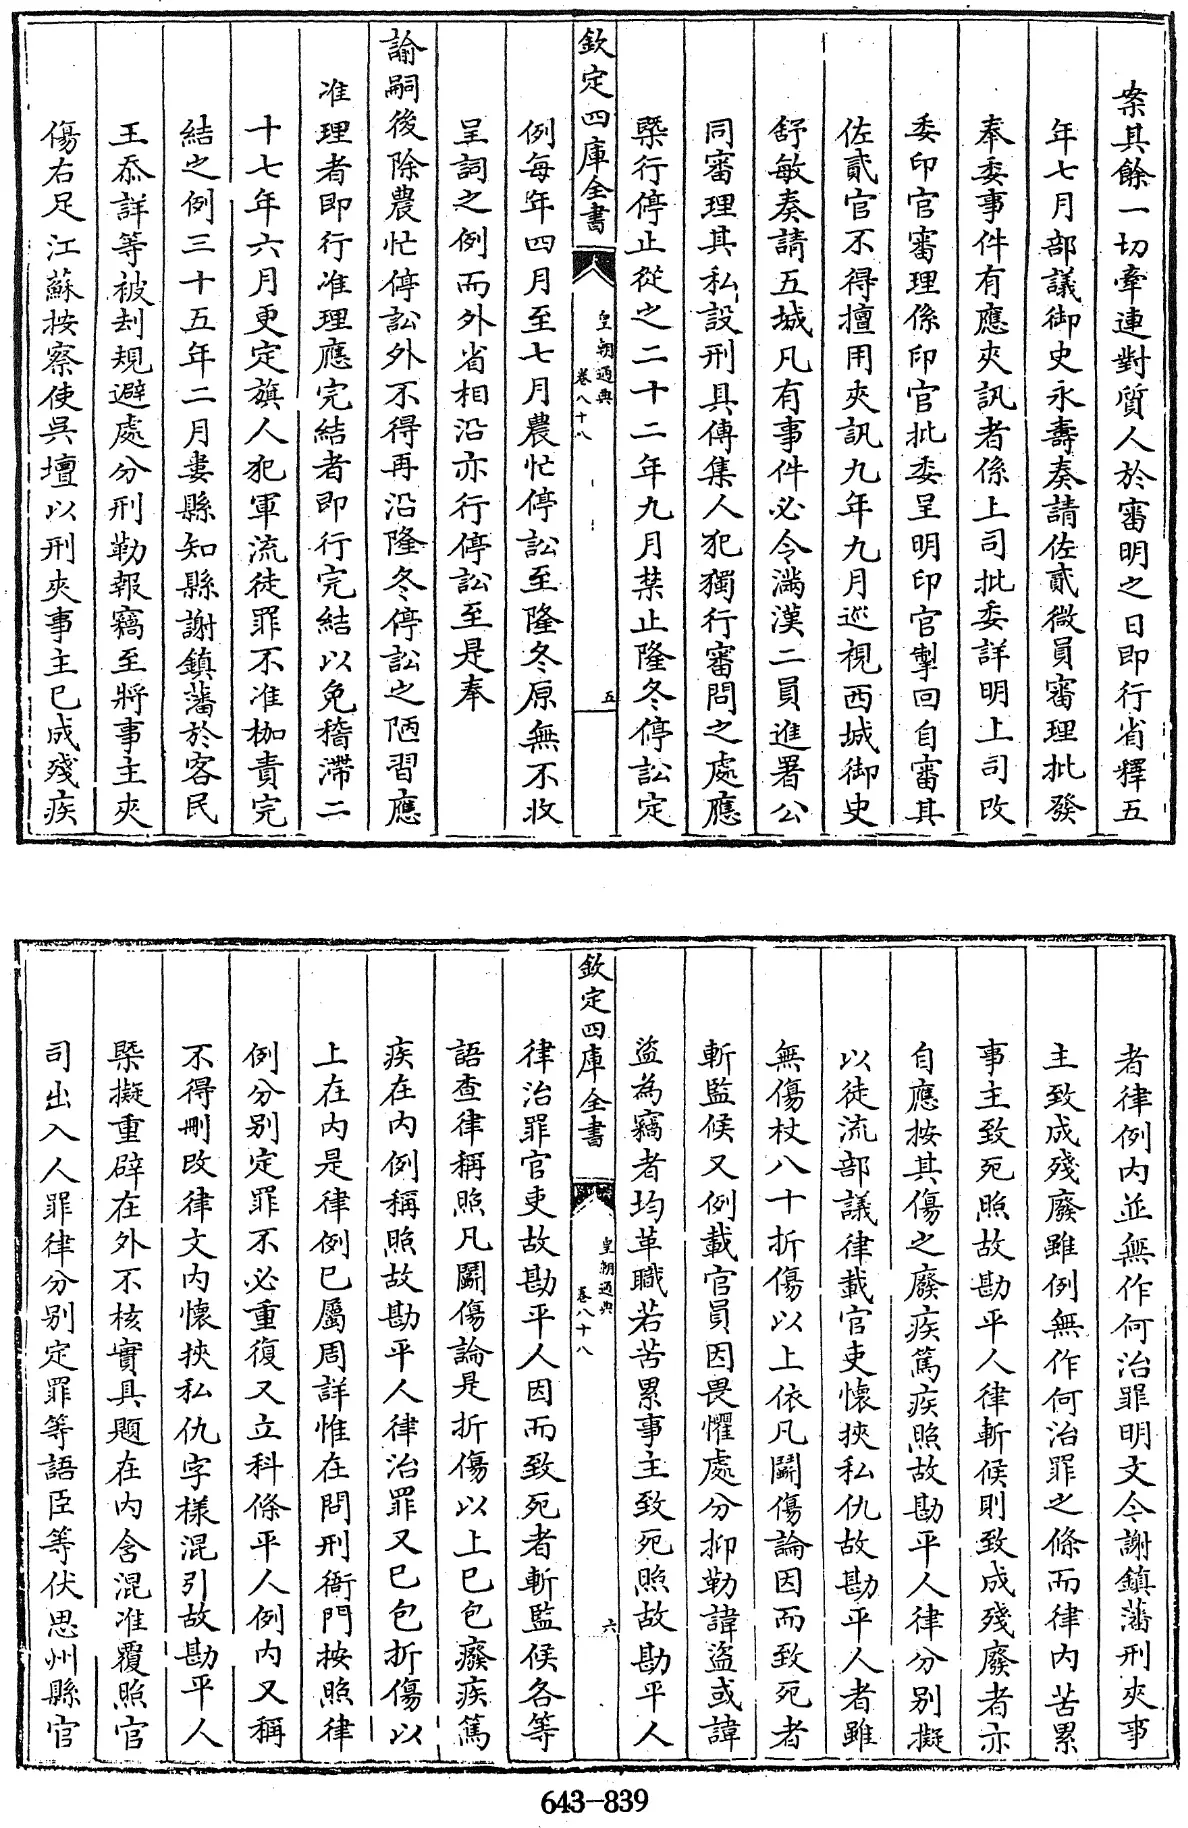 案其餘一切牽連對質人於審明之日即行省釋五
年七月部議御史永壽奏請佐貳微員審理批發
奉委事件有應夾訊者係上司批委詳明上司改
委印官審理係印官批委呈明印官掣回自審其
佐貳官不得擅用夾訊九年九月巡視西城御史
舒敏奏請五城凡有事件必令滿漢二員進署公
同審理其私設刑具傳集人犯獨行審問之處應
槩行停止從之二十二年九月禁止隆冬停訟定
欽定四庫全書
皇朝通典
卷八十八
五
例每年四月至七月農忙停訟至隆冬原無不收
呈詞之例而外省相沿亦行停訟至是奉
諭嗣後除農忙停訟外不得再沿隆冬停訟之陋習應
准理者即行准理應完結者即行完結以免稽滯二
十七年六月更定旗人犯軍流徒罪不准枷責完
結之例三十五年二月婁縣知縣謝鎮藩於客民
王忝詳等被刦規避處分刑勒報竊至將事主夾
傷右足江蘇按察使吳壇以刑夾事主已成殘疾
者律例內並無作何治罪明文令謝鎮藩刑夾事
主致成殘廢雖例無作何治罪之條而律內苦累
事主致死照故勘平人律斬候則致成殘廢者亦
自應按其傷之廢疾篤疾照故勘平人律分別擬
以徒流部議律載官吏懷挾私仇故勘平人者雖
無傷杖八十折傷以上依凡鬭傷論因而致死者
斬監候又例載官員因畏懼處分抑勒諱盜或諱
盜為竊者均革職若苦累事主致死照故勘平人
欽定四庫全書
皇朝通典
卷八十八
六
律治罪官吏故勘平人因而致死者斬監候各等
語查律稱照凡鬭傷論是折傷以上已包癈疾篤
疾在內例稱照故勘平人律治罪又已包折傷以
上在內是律例已屬周詳惟在問刑衙門按照律
例分別定罪不必重復又立科條平人例內又稱
不得刪改律文內懷挾私仇字樣混引故勘平人
槩擬重辟在外不核實具題在內含混准覆照官
司出入人罪律分別定罪等語臣等伏思州縣官
643-839